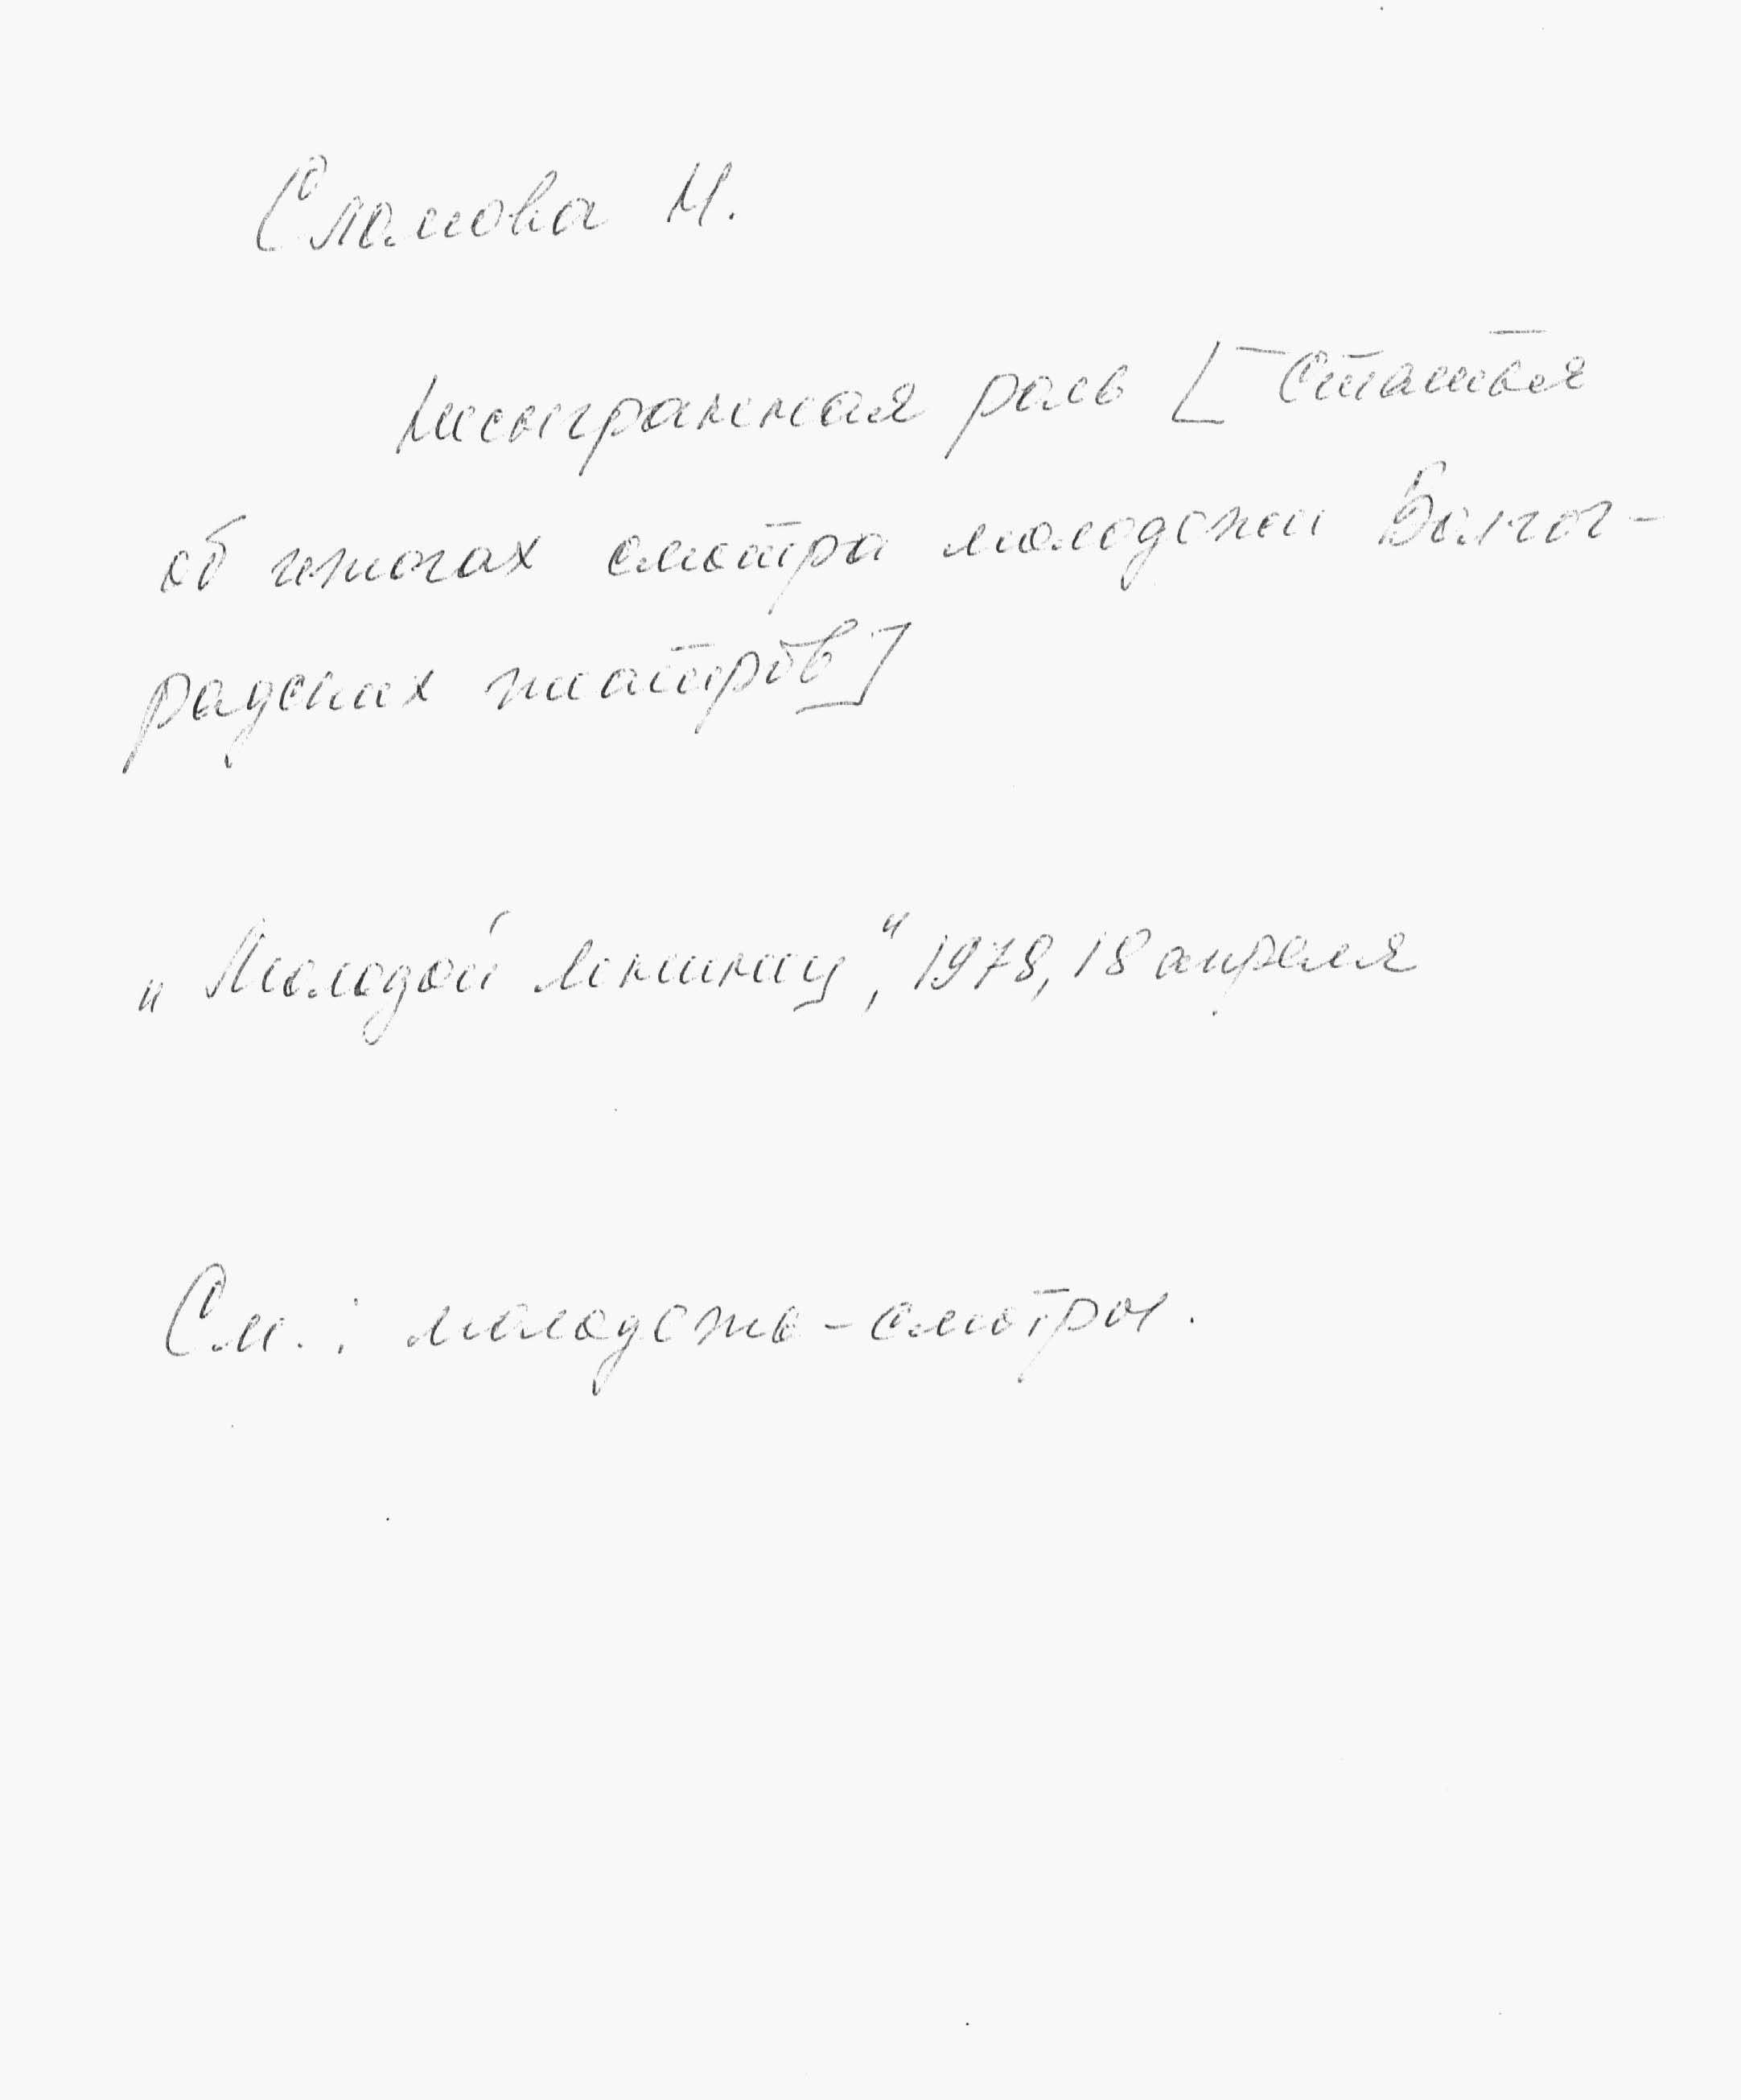 М.
Несыгранная роль [Статья
об итогах смотра молодежи Волгог-
радских театров]
„Молодой ленинец“, 1978, 18 апреля
См.: молодежь-смотры.